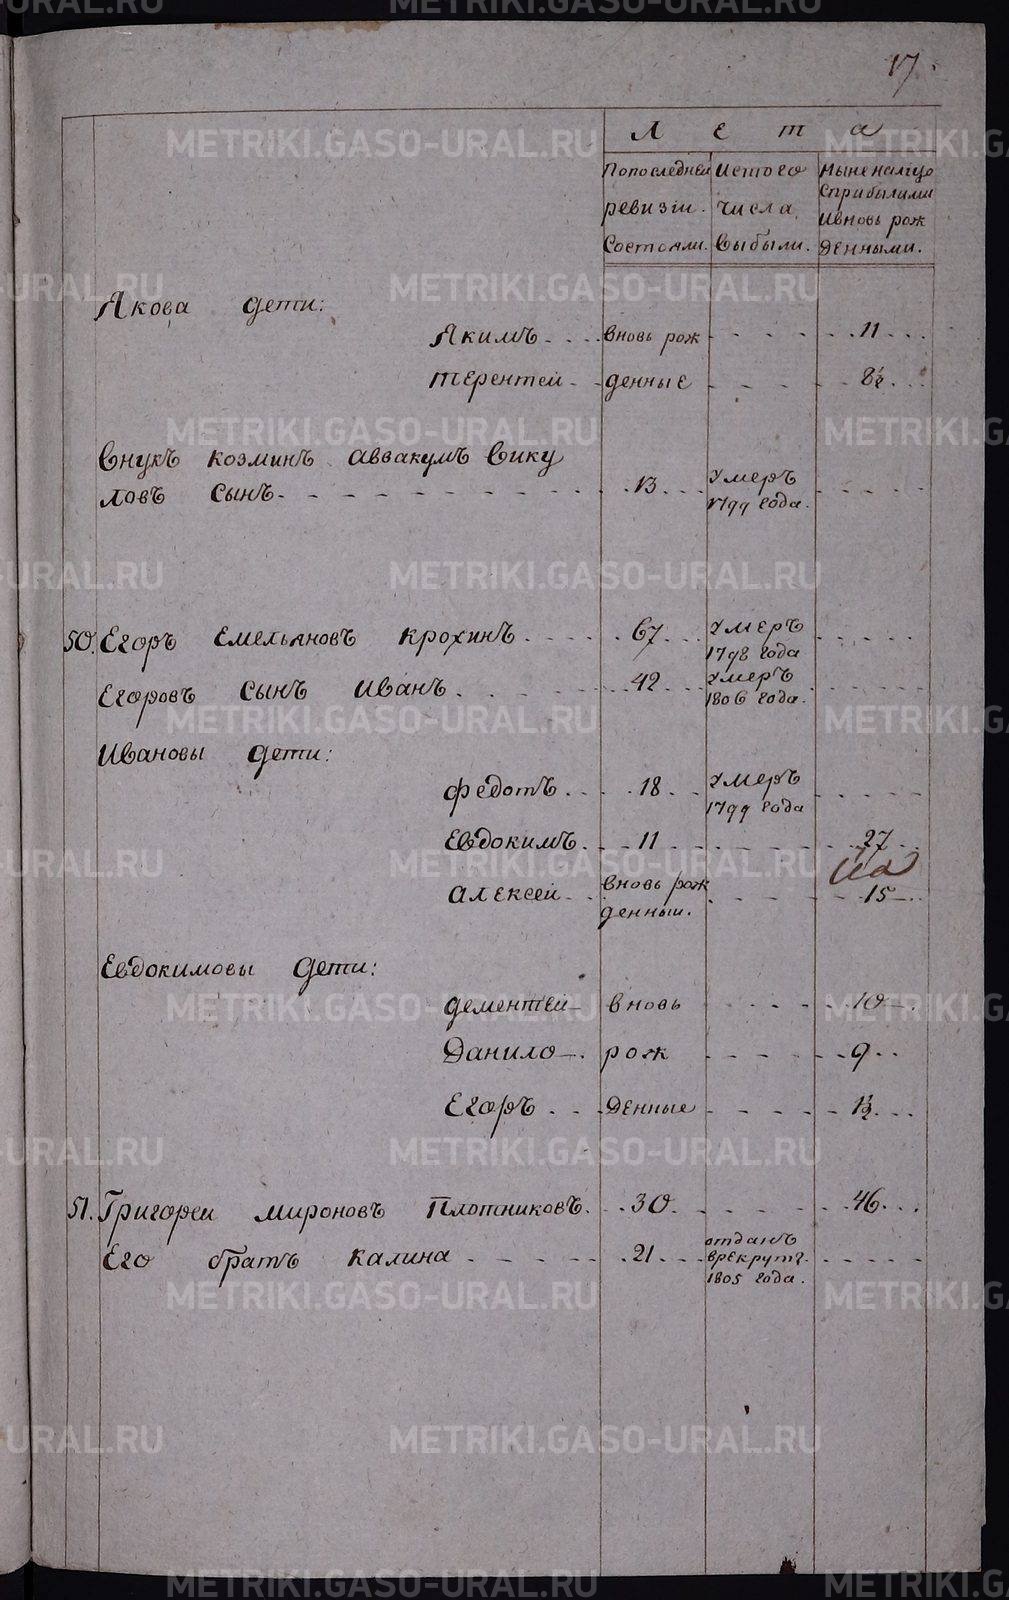 17.
Лета
Попоследней Истого Ныненалицо
ревизiи. числа Сприбылыми
Состояли. выбыли. Ивновь рож
денными.
Якова дети:
Якимъ вновь рож 11
Терентей денные 8½
Внукъ козминъ аввакумъ Вику
ловъ сынъ 13 Умеръ
1799 года.
50. Егоръ Емельяновъ крохинъ 67 Умеръ
1798 года
Егоровъ сынъ Иванъ 42 Умеръ
1806 года.
Ивановы дети:
федотъ 18 Умеръ
1799 года
Евдокимъ 11 27
алексей вновь рож 15
денный.
Евдокимовы дети:
дементей вновь 10
Данило рож 9
Егоръ денные 1½
51. Григореи мироновъ Плотниковъ. 30 46
Его братъ калина 21 отданъ
врекрутъ
1805 года.
METRIKI.GASO-URAL.RU